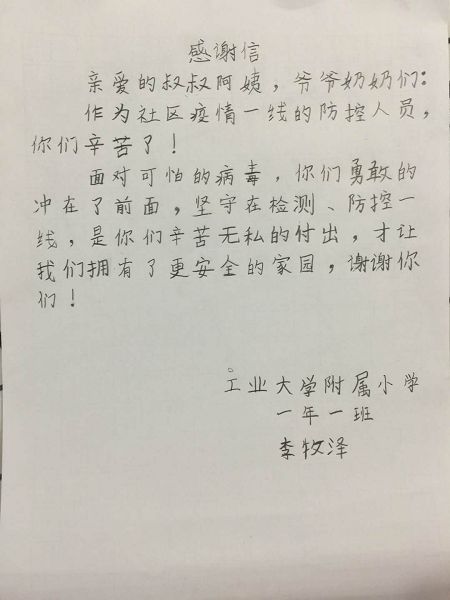 感谢信
亲爱的叔叔阿姨，爷爷奶奶们：
作为社区疫情一线的防控人员，
你们辛苦了！
面对可怕的病毒，你们勇敢的
冲在了前面，坚守在检测、防控一
线，是你们辛苦无私的付出，才让
我们拥有了更安全的家园，谢谢你
们！
工业大学附属小学
一年一班
李牧泽